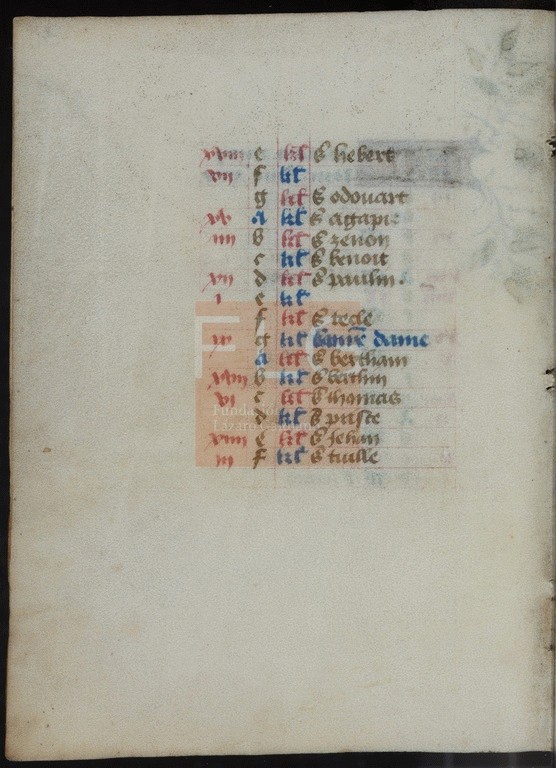 xviii e kl s hebert
vii f kl
g kl s odouart
xv A kl s agapit
iiii b kl s zenon
c kl s benoit
xii d kl s paulin.
i e kl
f kl s tecle
ix g kl dame
A kl s bertham
xvii b kl s berthin
vi c kl s thomas
d kl s
xiiii e kl s Jehan
iii f kl s
FLG
Fundación
Lázaro Galdiano